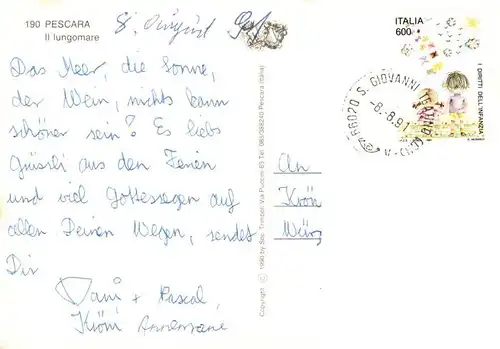 190 PESCARA
Il lungomare
8. August
Das Meer, die Sonne,
der Wein, nichts kann
schöner sein! Es liebs
Grüssli aus den Ferien
und viel Gottessegen auf
allen Deinen Wegen, sendet
Dir
Dani + Pascal,
Copyright © 1990 by Soc. Trimboli Via Puccini 63 Tel. 085/388240 Pescara (Italia)
ITALIA
600
I DIRITTI DELL'INFANZIA
66020 S. GIOVANNI
-8.8.91
An